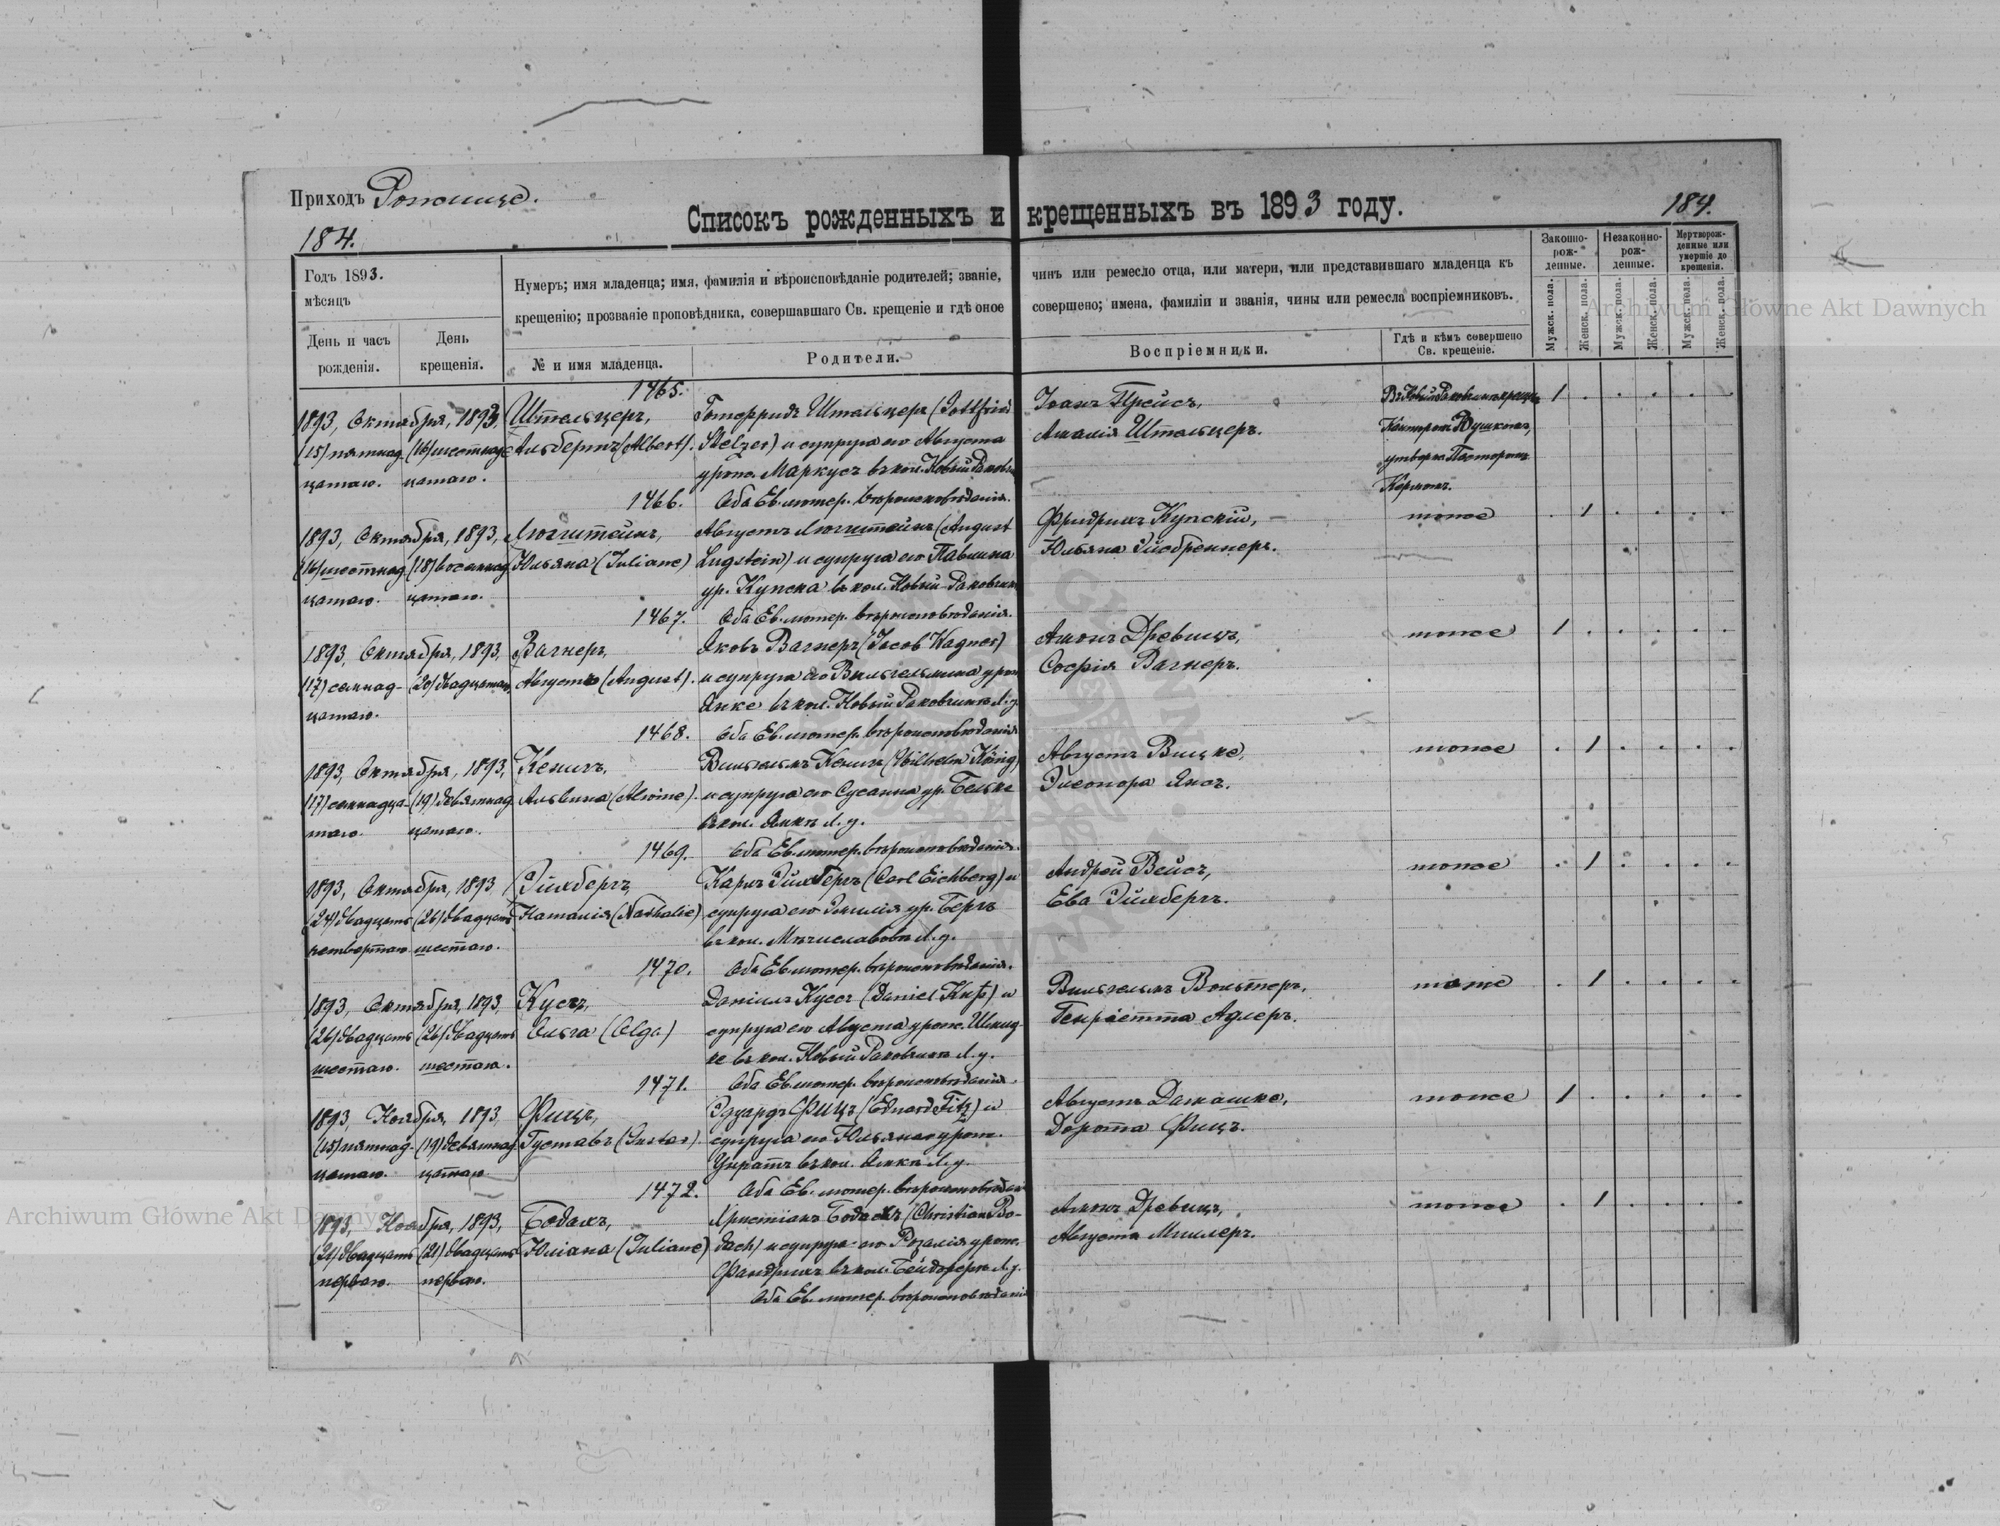 Приходъ Рожище.
Списокъ рожденныхъ и крещенныхъ въ 1893 году.
184.
184.
Годъ 1893.
мѣсяцъ
День и часъ рожденія.
День крещенія.
Нумеръ; имя младенца; имя, фамилія и вѣроисповѣданіе родителей; званіе, чинъ или ремесло отца, или матери, или представившаго младенца къ
крещенію; прозваніе проповѣдника, совершавшаго Св. крещеніе и гдѣ оное совершено; имена, фамиліи и званія, чины или ремесла воспріемниковъ.
№ и имя младенца.
Родители.
Воспріемники.
Гдѣ и кѣмъ совершено Св. крещеніе.
Законно-рож-денные.
Незаконно-рож-денные.
Мертворож-денные или умершіе до крещенія.
Мужск. пола.
Женск. пола.
Мужск. пола.
Женск. пола.
Мужск. пола.
Женск. пола.
1465.
1893, Октября, 1893, Штельцеръ, Готфридъ Штельцеръ (Gottfried Іоанъ Прейсъ, 1
(15) пятнад- (16) шестнад- Альбертъ (Albert). Stelzer) и супруга его Августа Амалія Штельцеръ. Канторомъ
цатаго. цатаго. урож. Маркусъ въ кол. Новый утвержд. Пасторомъ
1466. Оба Ев. лютер. вѣроисповѣданія. Керномъ.
1893, Октября, 1893, Люгштейнъ, Августъ Люгштейнъ (August Фридрихъ Купскій, тоже 1
(16) шестнад- (18) восемнад- Юльяна (Juliane) Lugstein) и супруга его Павлина Юльяна
цатаго. цатаго. ур. Купска въ кол. Новый
1467. Оба Ев. лютер. вѣроисповѣданія.
1893, Октября, 1893, Вагнеръ, Яковъ Вагнеръ (Jacob Wagner) Древицъ, тоже 1
(17) семнад- (20) двадцатаго, Августъ (August). и супруга его Вильгельмина урож. Софія Вагнеръ.
цатаго. Янке въ кол. Новый Л. у.
1468. Оба Ев. лютер. вѣроисповѣданія
1893, Октября, 1893, Кенигъ, Вильгельмъ Кенигъ (Wilhelm König) Августъ Вицке, тоже 1
(17) семнадца- (19) девятнад- Альвина (Alwine). и супруга его Сусанна ур. Элеонора
таго. цатаго. въ кол. Л. у.
1469. Оба Ев. лютер. вѣроисповѣданія.
1893, Октября, 1893 Эйхбергъ, Карлъ Эйхбергъ (Carl Eichberg) и Андрей Вейсъ, тоже 1
(24) двадцать (26) двадцать Наталія (Nathalie) супруга его ур. Бергъ Ева Эйхбергъ.
четвертаго шестаго. въ кол. Л. у.
1470. Оба Ев. лютер. вѣроисповѣданія.
1893, Октября, 1893, Кусъ, Даніилъ Кусъ (Daniel Kuß) и Вильгельмъ Вольтеръ, тоже 1
(26) двадцать (26) двадцать Ольга (Olga) супруга его Августа урож. Генріетта Адлеръ.
шестаго. шестаго. въ кол. Новый Л. у.
1471. Оба Ев. лютер. вѣроисповѣданія.
1893, Ноября, 1893, Фицъ, Эдуардъ Фицъ (Eduard Fitz) и Августъ Дамашке, тоже 1
(15) пятнад- (19) девятнад- Густавъ (Gustav). супруга его Юльяна урож. Дорота Фицъ.
цатаго. цатаго въ кол. Л. у.
1472. Оба Ев. лютер.
1893, Ноября, 1893, Бодахъ, Христіанъ Бодахъ (Christian Bo- Древицъ, тоже 1
(21) двадцать (21) двадцать Юліана (Juliane) dach) и супруга его Розалія урож. Августа Миллеръ.
перваго. перваго. въ кол. Л. у.
Оба Ев. лютер. вѣроисповѣданія
Archiwum Główne Akt Dawnych
Archiwum Główne Akt Dawnych